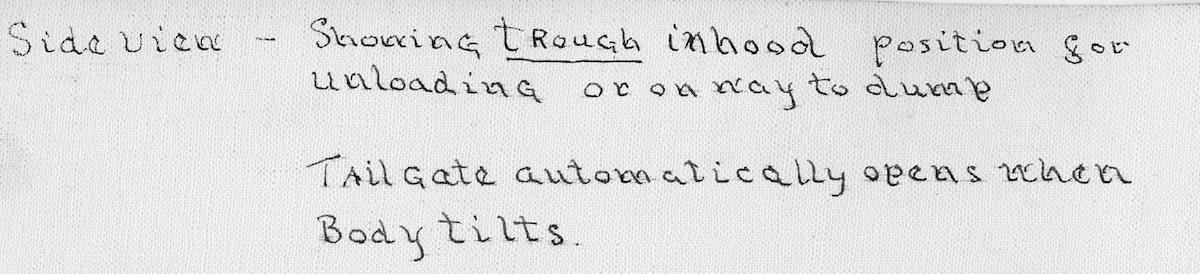 Side view - Showing tRough inhood position for
unloading or on way to dump
TAilGate automatically opens when
Body tilts.